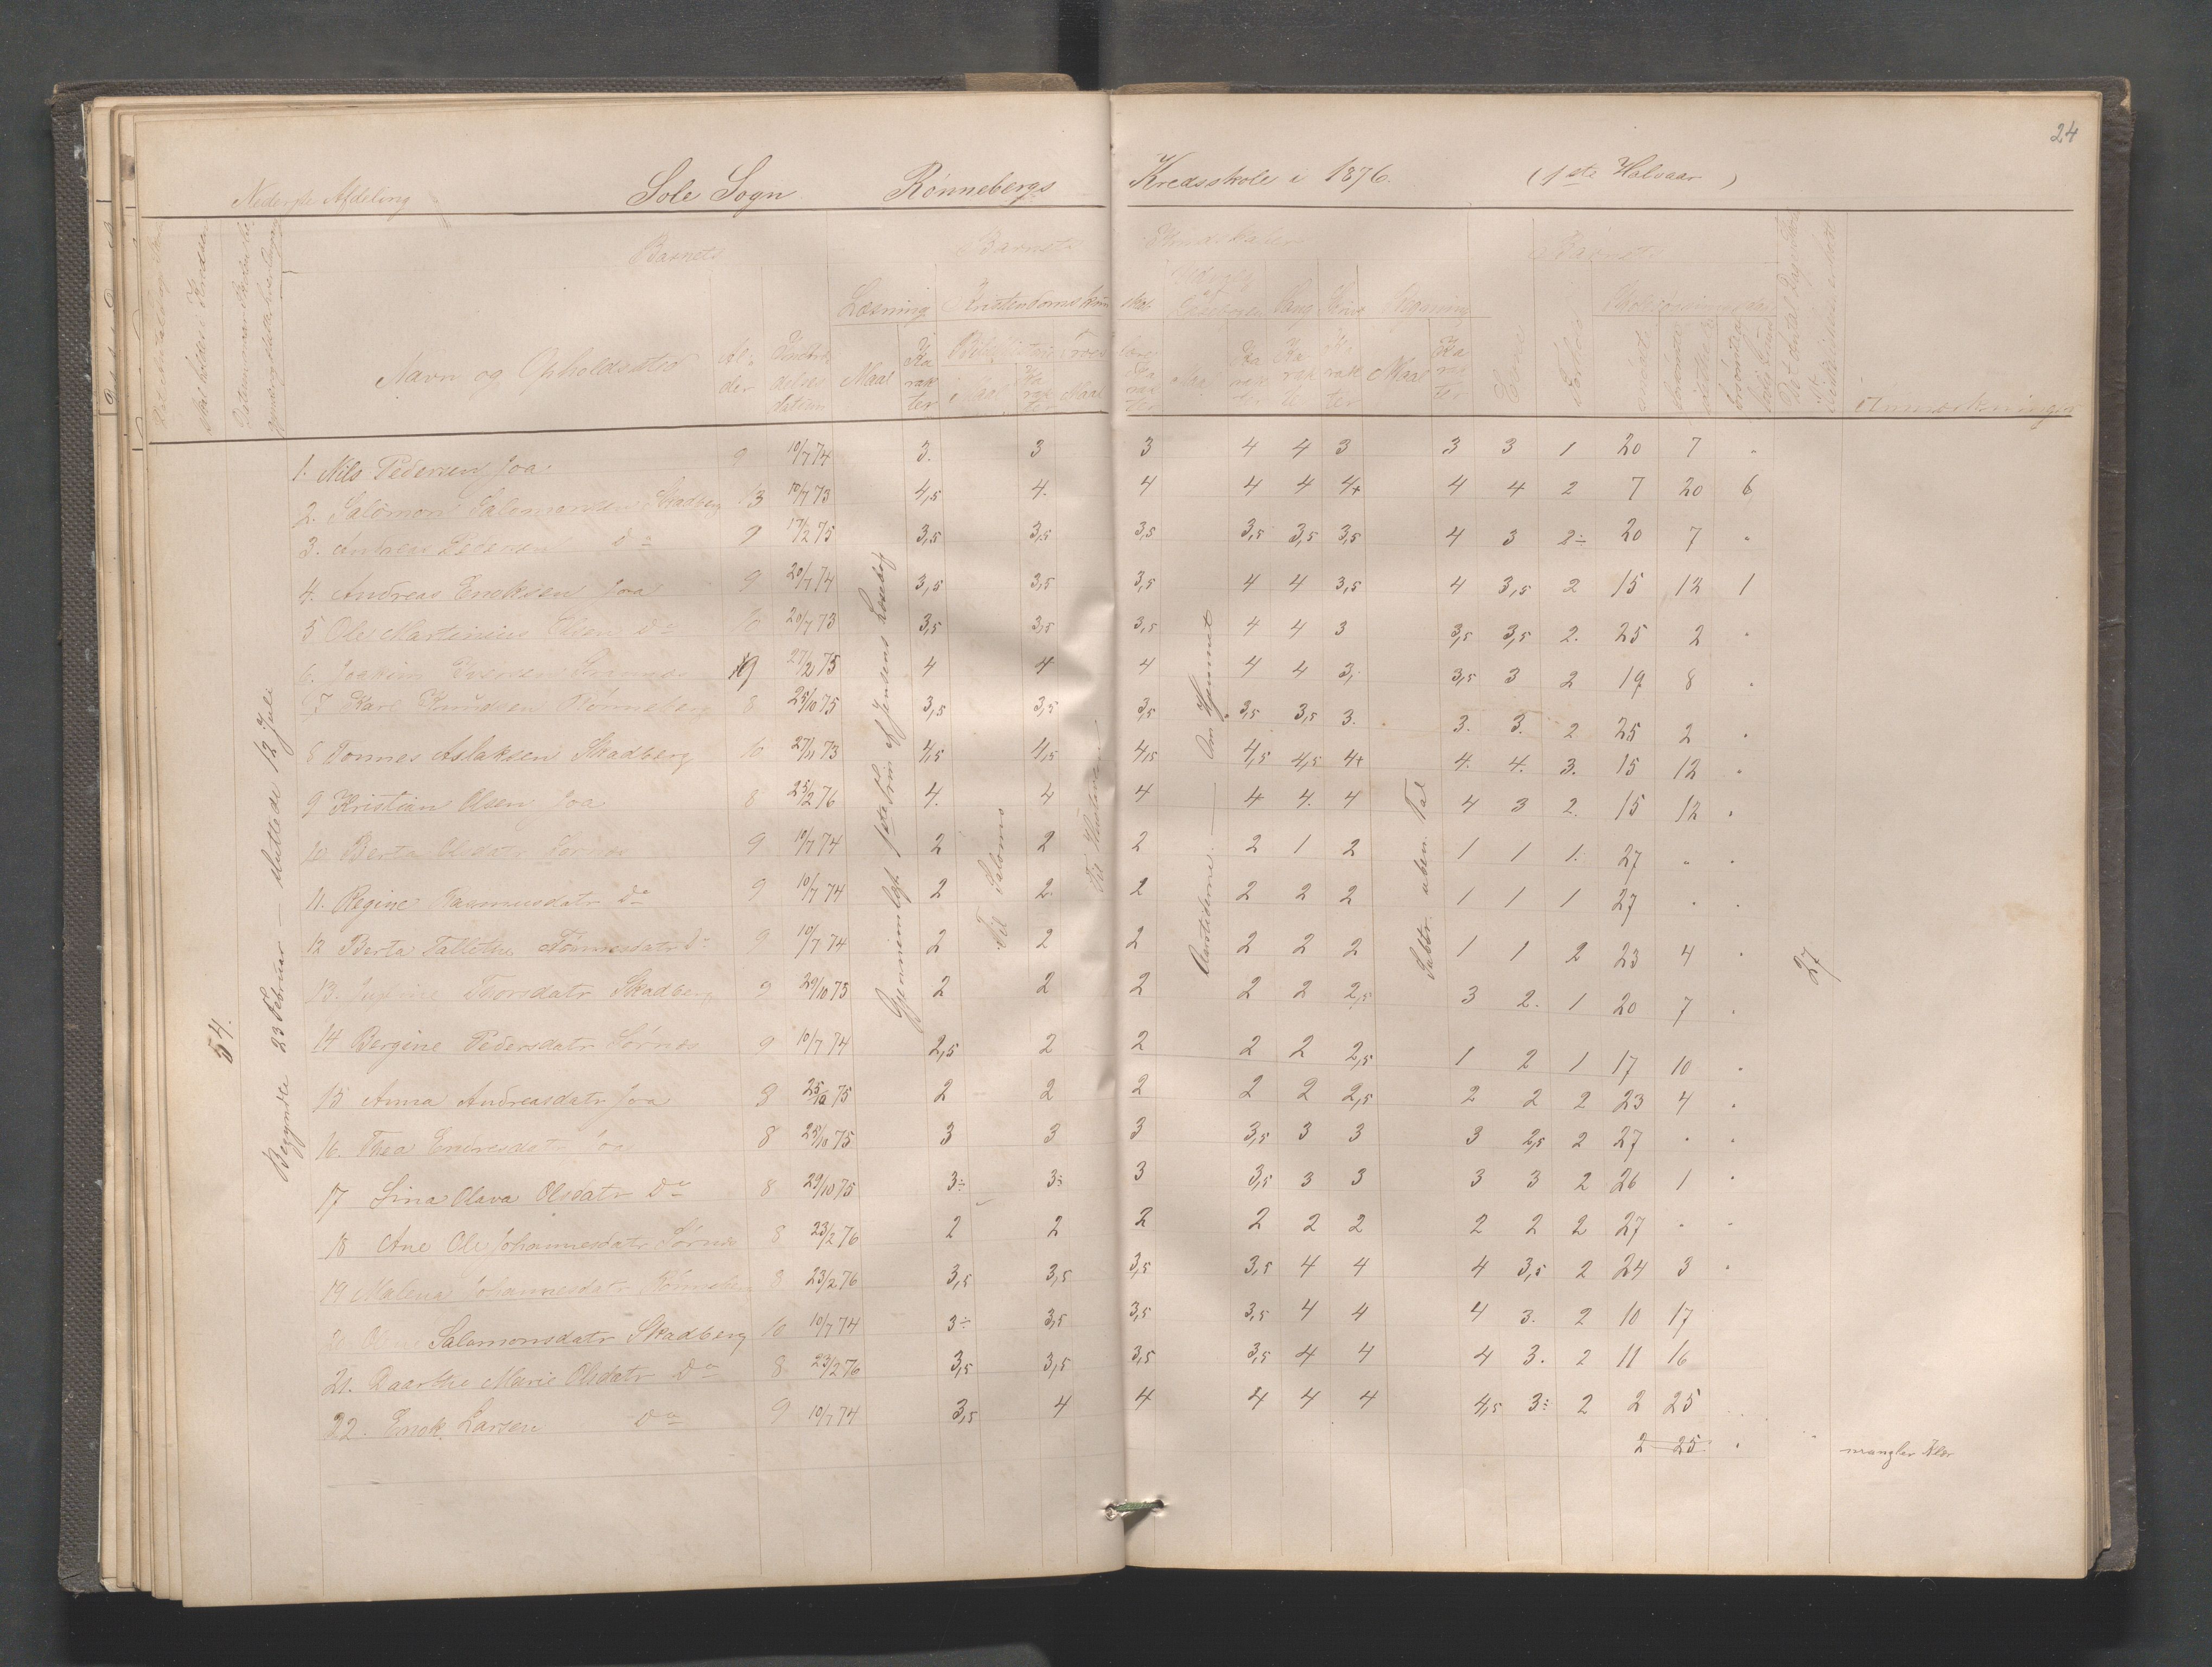 24
Nederste Afdeling Sole Sogn Rønnebergs Kredsskole i 1876. (1ste Halvaar)
Barnets Barnets Kundskaber Barnets
Læsning Kristendomskundskab Sang Skrivning Regning
Navn og Opholdssted Alder Indtrædelsesdatum Maal Karakter Maal Karakter Maal Karakter Maal Karakter Karakter Karakter Maal Karakter Evner Forhold Anmærkninger
54.
Begyndte 23 Februar — sluttede 12 Juli
Gjennemlægt 1ste Trin af Jensens Læsebog
Til Salomo
Aarstiderne — Om Hjemmet
Subtr. uben. Tal
27
1. Nils Pedersen Joa 9 10/7 74 3. 3 3 4 4 3 3 3 1 20 7 "
2. Salomon Salomonsen Skadberg 13 10/7 73 4,5 4. 4 4 4 4+ 4 4 2 7 20 6
3. Andreas Pedersen do 9 17/2 75 3,5 3,5 3,5 3,5 3,5 3,5 4 3 2÷ 20 7 "
4. Andreas Enoksen Joa 9 20/7 74 3,5 3,5 3,5 4 4 3,5 4 3,5 2 15 12 1
5 Ole Martinius Olsen do 10 20/7 73 3,5 3,5 3,5 4 4 3 3,5 3,5 2. 25 2 "
6. Joakim 9 27/2 75 4 4 4 4 4 3. 3,5 3 2 19 8 "
7 Karl Knudsen Rønneberg 8 25/10 75 3,5 3,5 3,5 3,5 3,5 3. 3. 3. 2 25 2 "
8 Tønnes Aslaksen Skadberg 10 27/11 73 4,5 4,5 4,5 4,5 4,5 4+ 4. 4. 3. 15 12 "
9 Kristian Olsen Joa 8 25/2 76 4. 4 4 4 4. 4 4 3 2. 15 12 "
10 Berta Olsdatr Sørnes 9 10/7 74 2 2 2 2 1 2 1 1 1. 27 " "
11. Regine Rasmusdatr do 9 10/7 74 2 2. 2 2 2 2 1 1 1 27 " "
12 Berta Tallette Tønnesdatr do 9 10/7 74 2 2 2 2 2 2 1 1 2 23 4 "
13. Thorsdatr Skadberg 9 29/10 75 2 2 2 2 2 2,5 3 2. 1 20 7 "
14 Bergine Pedersdatr Sørnes 9 10/7 74 2,5 2 2 2 2 2,5 1 2 1 17 10 "
15 Anna Andreasdatr Joa 8 25/10 75 2 2 2 2 2 2,5 2 2 2 23 4 "
16. Thea Endresdatr Joa 8 25/10 75 3 3 3 3,5 3 3 3 2,5 2 27 " "
17 Sina Olava Olsdatr do 8 29/10 75 3÷ 3÷ 3 3,5 3 3 3 3 2 26 1 "
18 Ane Oli Johannesdatr Sørnes 8 23/2 76 2 2 2 2 2 2 2 2 2 27 " "
19 Malena Johannesdatr Rønneberg 8 23/2 76 3,5 3,5 3,5 3,5 4 4 4 3,5 2 24 3 "
20 Salomonsdatr Skadberg 10 10/7 74 3÷ 3,5 3,5 3,5 4 4 4 3. 2 10 17
21. Daarthe Marie Olsdatr do 8 23/2 76 3,5 3,5 3,5 3,5 4 4 4 3. 2 11 16
22. Enok Larsen do 9 10/7 74 3,5 4 4 4 4 4 4,5 3÷ 2 2 25
2 25 " mangler Klær